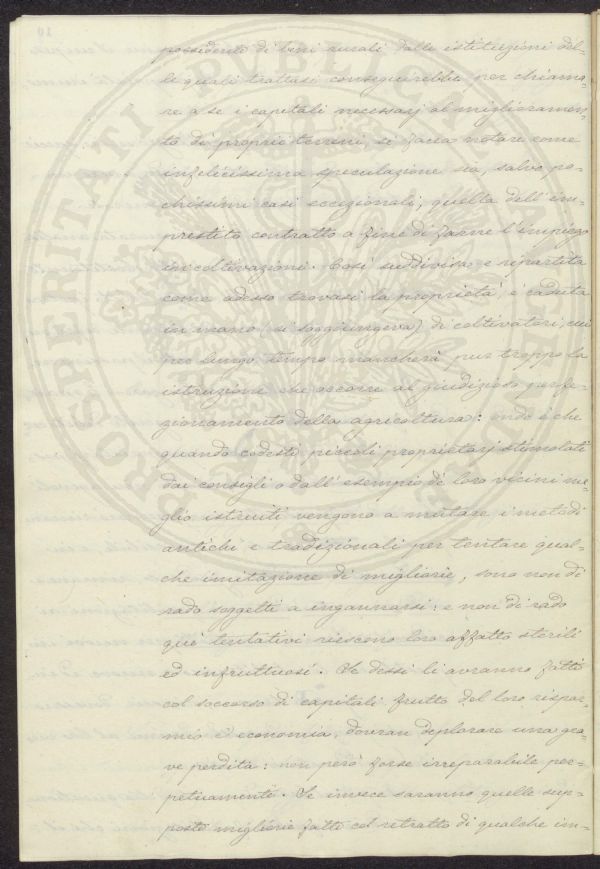 possidente di beni rurali dalle istituzioni del-
le quali trattasi conseguirebbe per chiama-
re a se i capitali necessarj al miglioramen-
to di proprj terreni, si facea notare come
infelicissima speculazione sia, salvo po-
chissimi casi eccezionali, quella dell' im-
prestito contratto a fine di farne l'impiego
in coltivazioni. Così suddivisa e ripartita
come adesso trovasi la proprietà, è caduta
in mano (si soggiungeva) di coltivatori, cui
per lungo tempo mancherà pur troppo la
istruzione che occorre al giudizioso perfe-
zionamento della agricoltura: onde è che
quando codesti piccoli proprietarj stimolati
dai consigli o dall' esempio de loro vicini me-
glio istruiti vengono a mutare i metodi
antichi e tradizionali per tentare qual-
che imitazione di migliorie, sono non di
rado soggetti a ingannarsi: e non di rado
que' tentativi riescono loro affatto sterili
ed infruttuosi. Se dessi li avranno fatti
col soccorso di capitali frutto del loro rispar-
mio ed economia, dovran deplorare una gra-
ve perdita: non però forse irreparabile per-
petuamente. Se invece saranno quelle sup-
poste migliorie fatte col retratto di qualche im-
PROSPERITATI PUBLICAE AUGENDAE